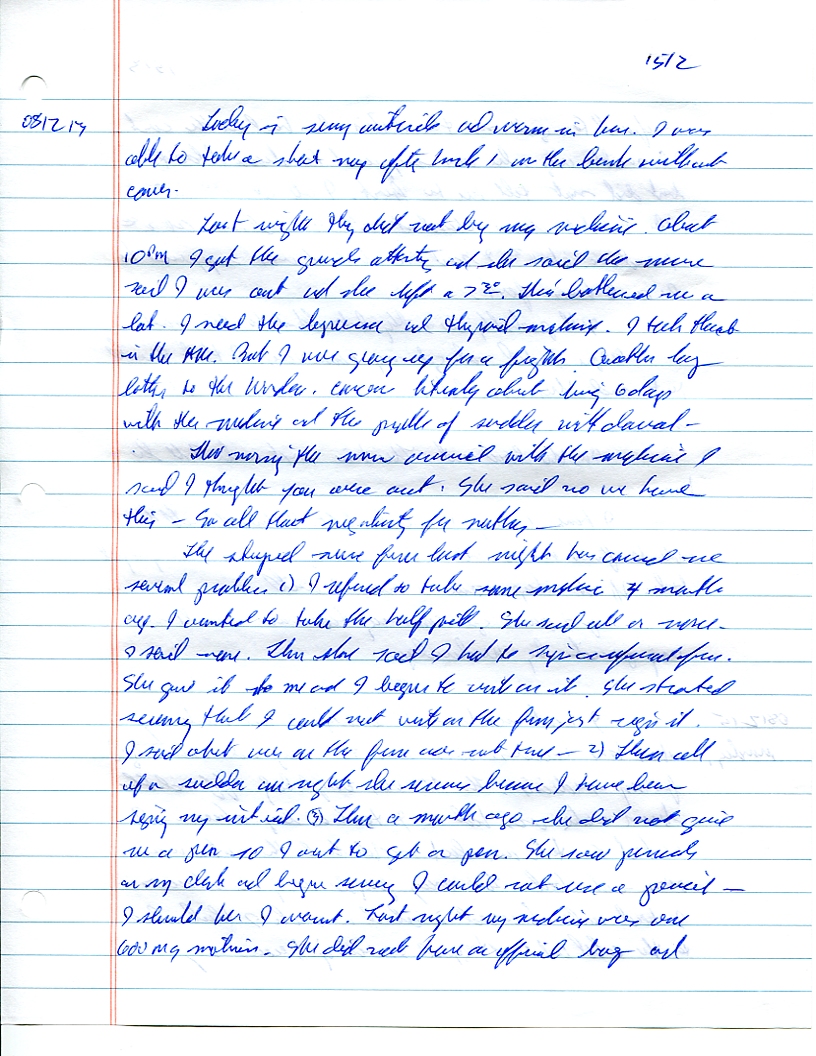 1512
08 12 14 Today is sunny outside and warm in here. I was
able to take a short nap after lunch on the bunk without
cover.
Last night they did not bring my medicine. About
10 PM I got the guards and she said the nurse
said I was out and she left a 7 30. This bothered me a
lot. I need the and thyroid medicine. I take that
in the AM. But I was gearing up for a fight. Another long
letter to the Warden. about being 6 days
with the medicine and the of sudden withdrawal –
This morning the nurse with the medicine I
said I thought you were out. She said no we have
this – So all that negativity for nothing –
The stupid nurse from last night has caused me
several problems 1) I refused to take some medicine 4 months
ago. I wanted to take the half pill. She said all or none.
I said none. Then she said I had to sign a refusal form.
She gave it to me and I began to write on it. She started
screaming that I could not write on the form just sign it.
I said what was on the form was not true – 2) Then all
of a sudden one night she screams because I have been
my initial. 3) Then a month ago she did not give
me a pen so I went to get a pen. She saw pencils
on my desk and began I could not use a pencil –
I her I wasn't. Last night my medicine was one
600 mg. She did not have an official bag and